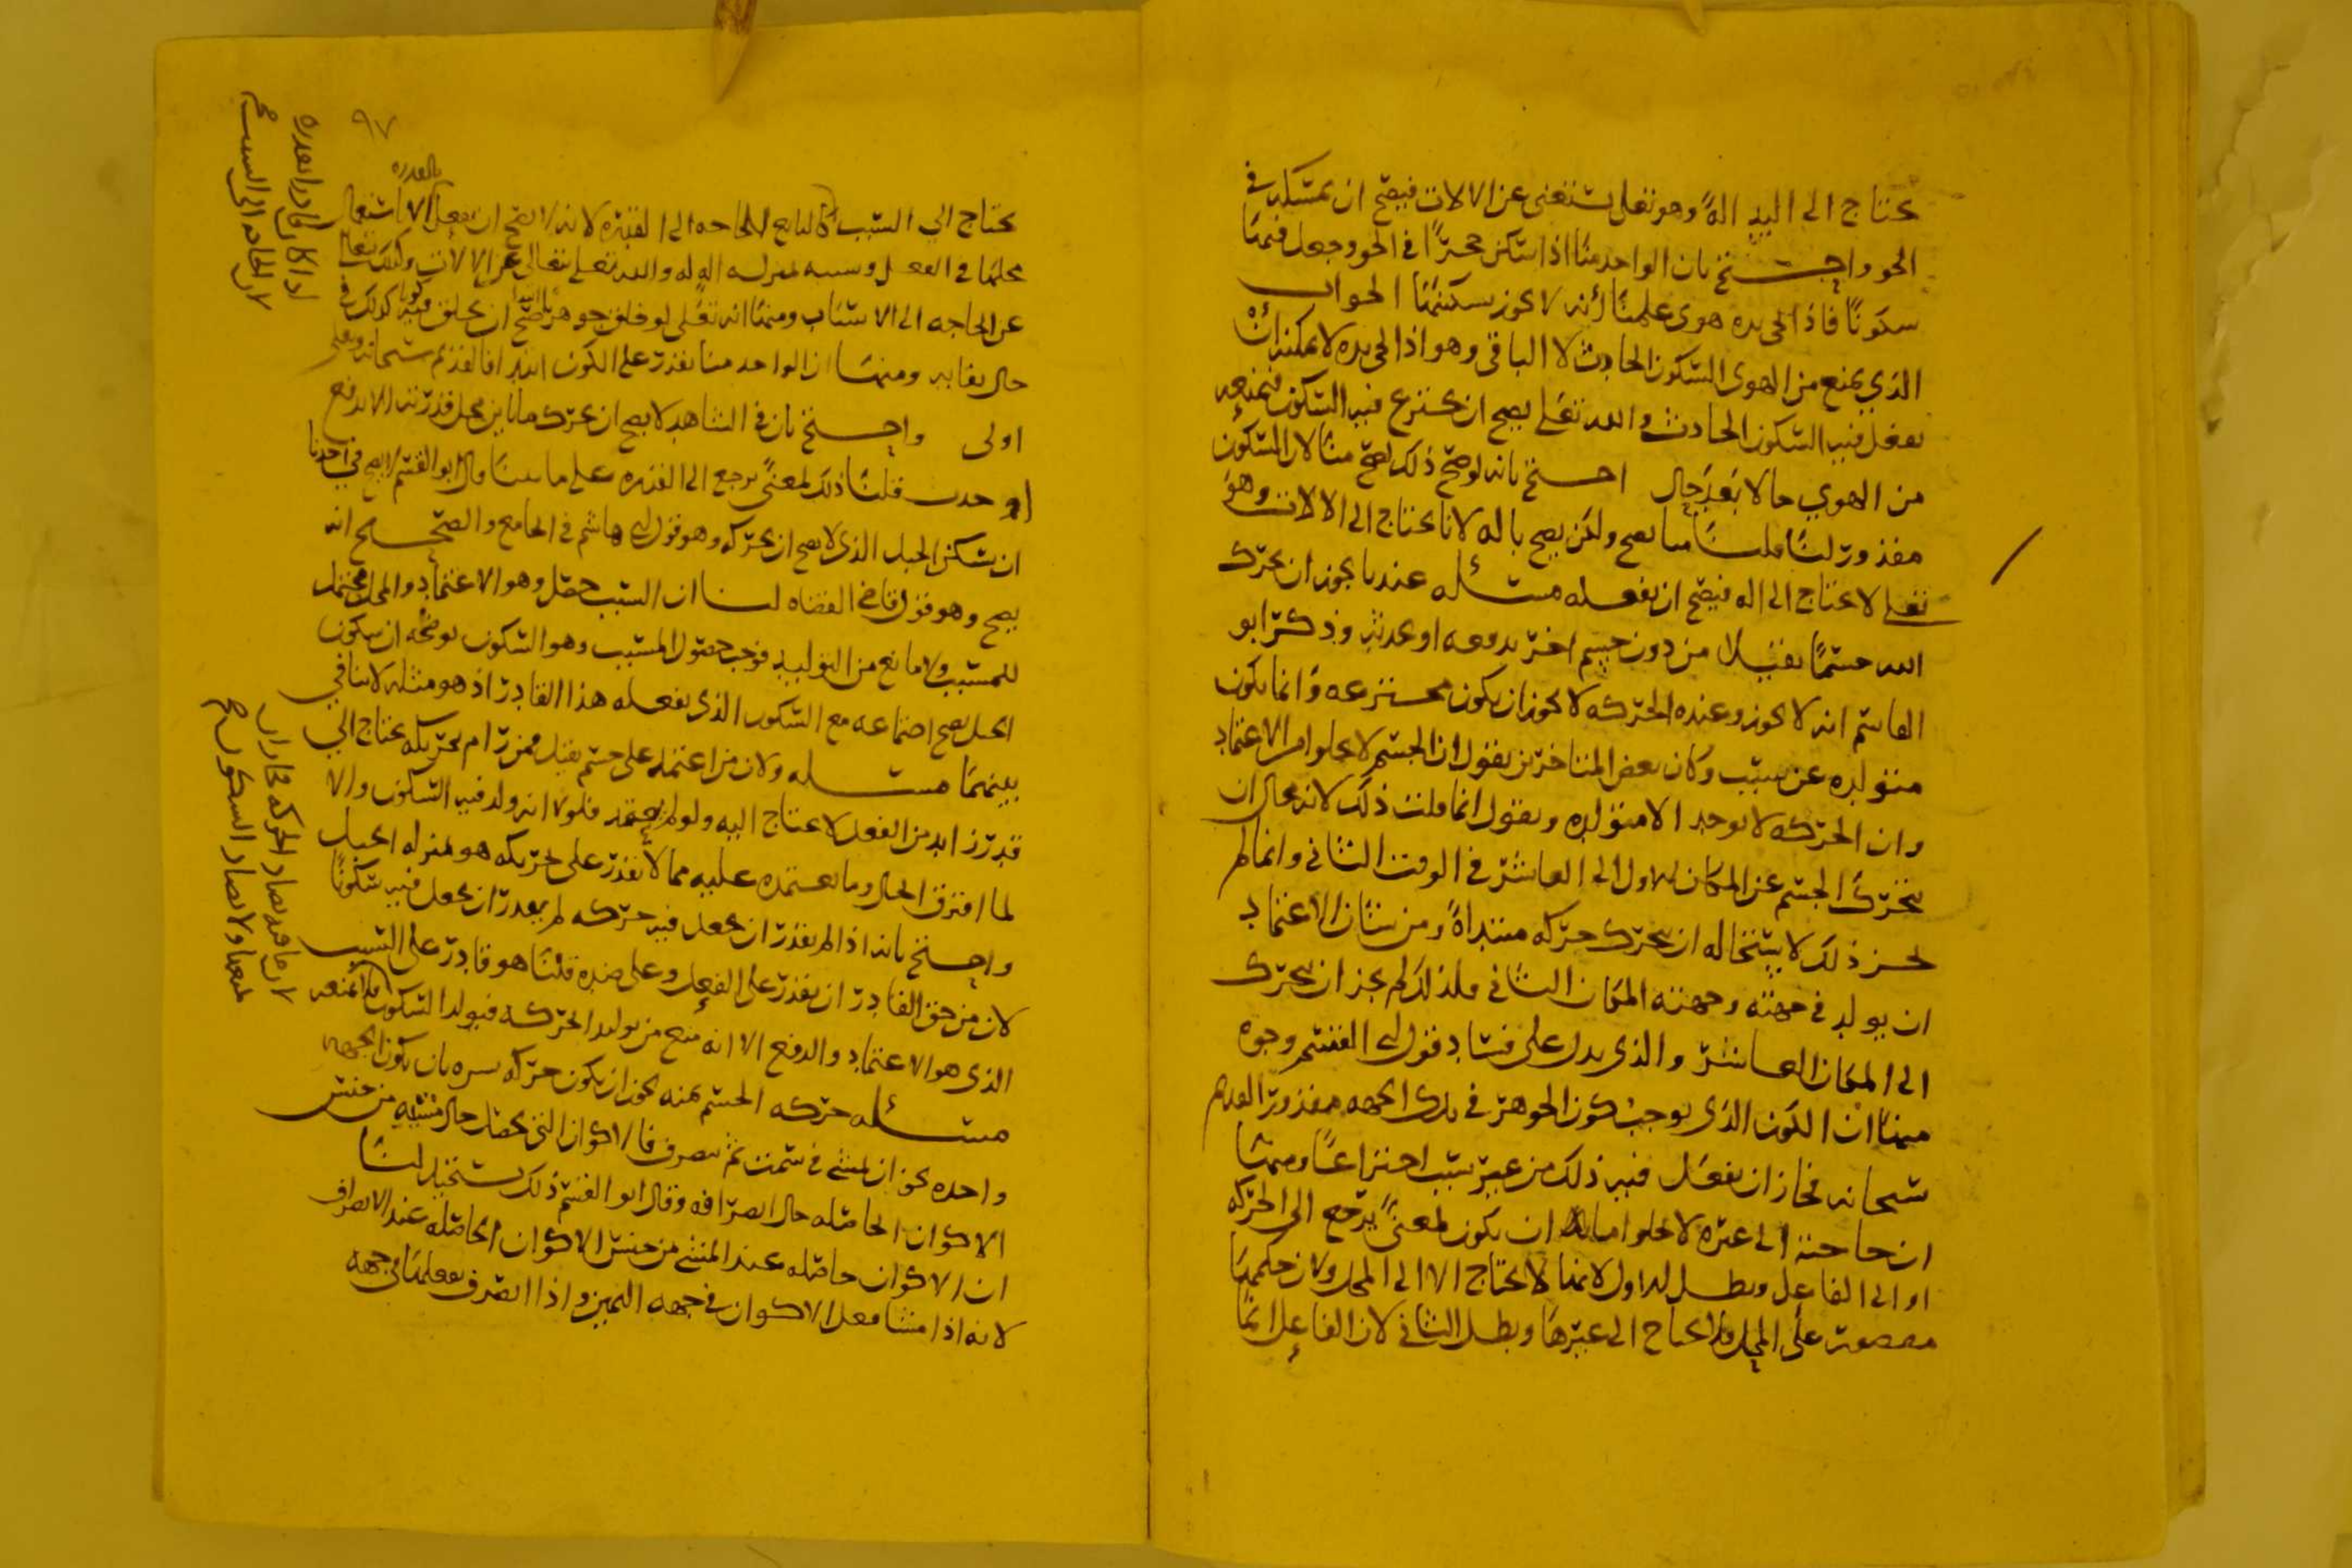 يحتاج الى اليد الة وهو تعلى يستغنى عن الالات فيصح ان يمسكه في
الجو واحتج بان الواحد منا اذا سكن حجرًا في الجو وجعل فيها
سكونًا فاذا نحى يده هوى علمنا انه لا يجوز تسكينها الجواب
الذي يمنع من الهوى السكون الحادث لا الباقي وهو اذا نحى يده لا يمكنه ان
يفعل فيه السكون الحادث والله تعلى يصح ان يخترع فيه السكون فيمنعه
من الهوي حالا بعد حال احتج بانه لو صح ذلك لصح منا لان السكون
مقدور لنا قلنا يصح ولكن يصح بالة لانا نحتاج الى الالات وهو
تعلى لا يحتاج الى اله فيصح ان يفعله مسئله عندنا يجوز ان يحرك
الله جسمًا ثقيلا من دون جسم اخر يدفعه او يجذبه وذكر ابو
القاسم انه لا يجوز وعنده الحركه لا يجوز ان يكون مخترعه وانما يكون
متولده عن سبب وكان بعض المتاخرين يقول ان الجسم لا يخلو من الاعتماد
وان الحركه لا يوجد الا متولده ويقول انما قلت ذلك لانه محال ان
يتحرك الجسم عن المكان الاول الى العاشر في الوقت الثاني وانما لم
يجز ذلك لاستحاله ان يتحرك حركه مبتداةً ومن شان الاعتماد
ان يولد في جهته وجهته المكان الثاني فلذلك لم يجز ان يتحرك
الى المكان العاشر والذي يدل على فساد قول ابي القسم وجوه
منها ان الكون الذي يوجب كون الجوهر في تلك الجهه مقدور القديم
سبحانه فجاز ان يفعل فيه ذلك من غير سبب اختراعًا ومنها
ان حاجته الى غيره لا يخلو اما ان يكون لمعنى يرجع الى الحركه
او الى الفاعل وبطل الاول لانها لا يحتاج الا الى المحل ولان حكمها
مقصور على المحل فلا يحتاج الى غيرها وبطل الثاني لان الفاعل انما
٩٧
بالقدره
يحتاج الي السبب لحاجه الى القدره لانه لا يصح ان يفعل الا باستعمال
محلها في الفعل وسببه بمنزله اله له والله تعلى يتعالى عن الالات وكذلك تعالى
عن الحاجه الى الاسباب ومنها انه تعلى لو خلق جوهرا صح ان يخلق فيه كونا كذلك في
حال بقايه ومنها ان الواحد منا يقدر على الكون ابتدا فالقديم سبحانه وتعلى
اولى واحتج بان في الشاهد لا يصح ان يحرك ما باين محل قدرته الا بدفع
او جذب قلنا ذلك لمعنى يرجع الى القدره على ما بينا قال ابو القسم لا يصح في احدنا
ان يسكن الجبل الذي لا يصح ان يحركه وهو قول ابي هاشم في الجامع والصحيح انه
يصح وهو قول قاضي القضاه لنا ان السبب حصل وهو الاعتماد والمحل محتمل
للمسبب ولا مانع من التوليد فوجب حصول المسبب وهو السكون يوضحه ان سكون
الجبل يصح اجتماعه مع السكون الذي يفعله هذا القادر اذ هو مثله لا تنافي
بينهما مسئله ولان من اعتمد على جسم ثقيل فمن رام تحريكه يحتاج الي
قدر زايد من الفعل لا يحتاج اليه ولو لم يعتمد فلولا انه ولد فيه السكون والا
لما افترق الحال وما يعتمده عليه مما لا يقدر على تحريكه هو بمنزله الجبل
واحتج بانه اذا لم يقدر ان يجعل فيه حركه لم يقدر ان يجعل فيه سكونًا
لان من حق القادر ان يقدر على الفعل وعلى ضده قلنا هو قادر على السبب
الذي هو الاعتماد والدفع الا انه منع من توليد الحركه فيولد السكون
مسئله حركه الجسم يمنه يجوز ان يكون حركه يسره بان يكون الجهه
واحده نحو ان يمشي في سمت ثم ينصرف فالاكوان التي يحصل حال مشيه من جنس
الاكوان الحاصله حال انصرافه وقال ابو القسم ذلك يستحيل لنا
ان الاكوان حاصله عند المشي من جنس الاكوان الحاصله عند الانصراف
لانه اذا مشا فعل الاكوان في جهه اليمين واذا انصرف يفعلها في جهه